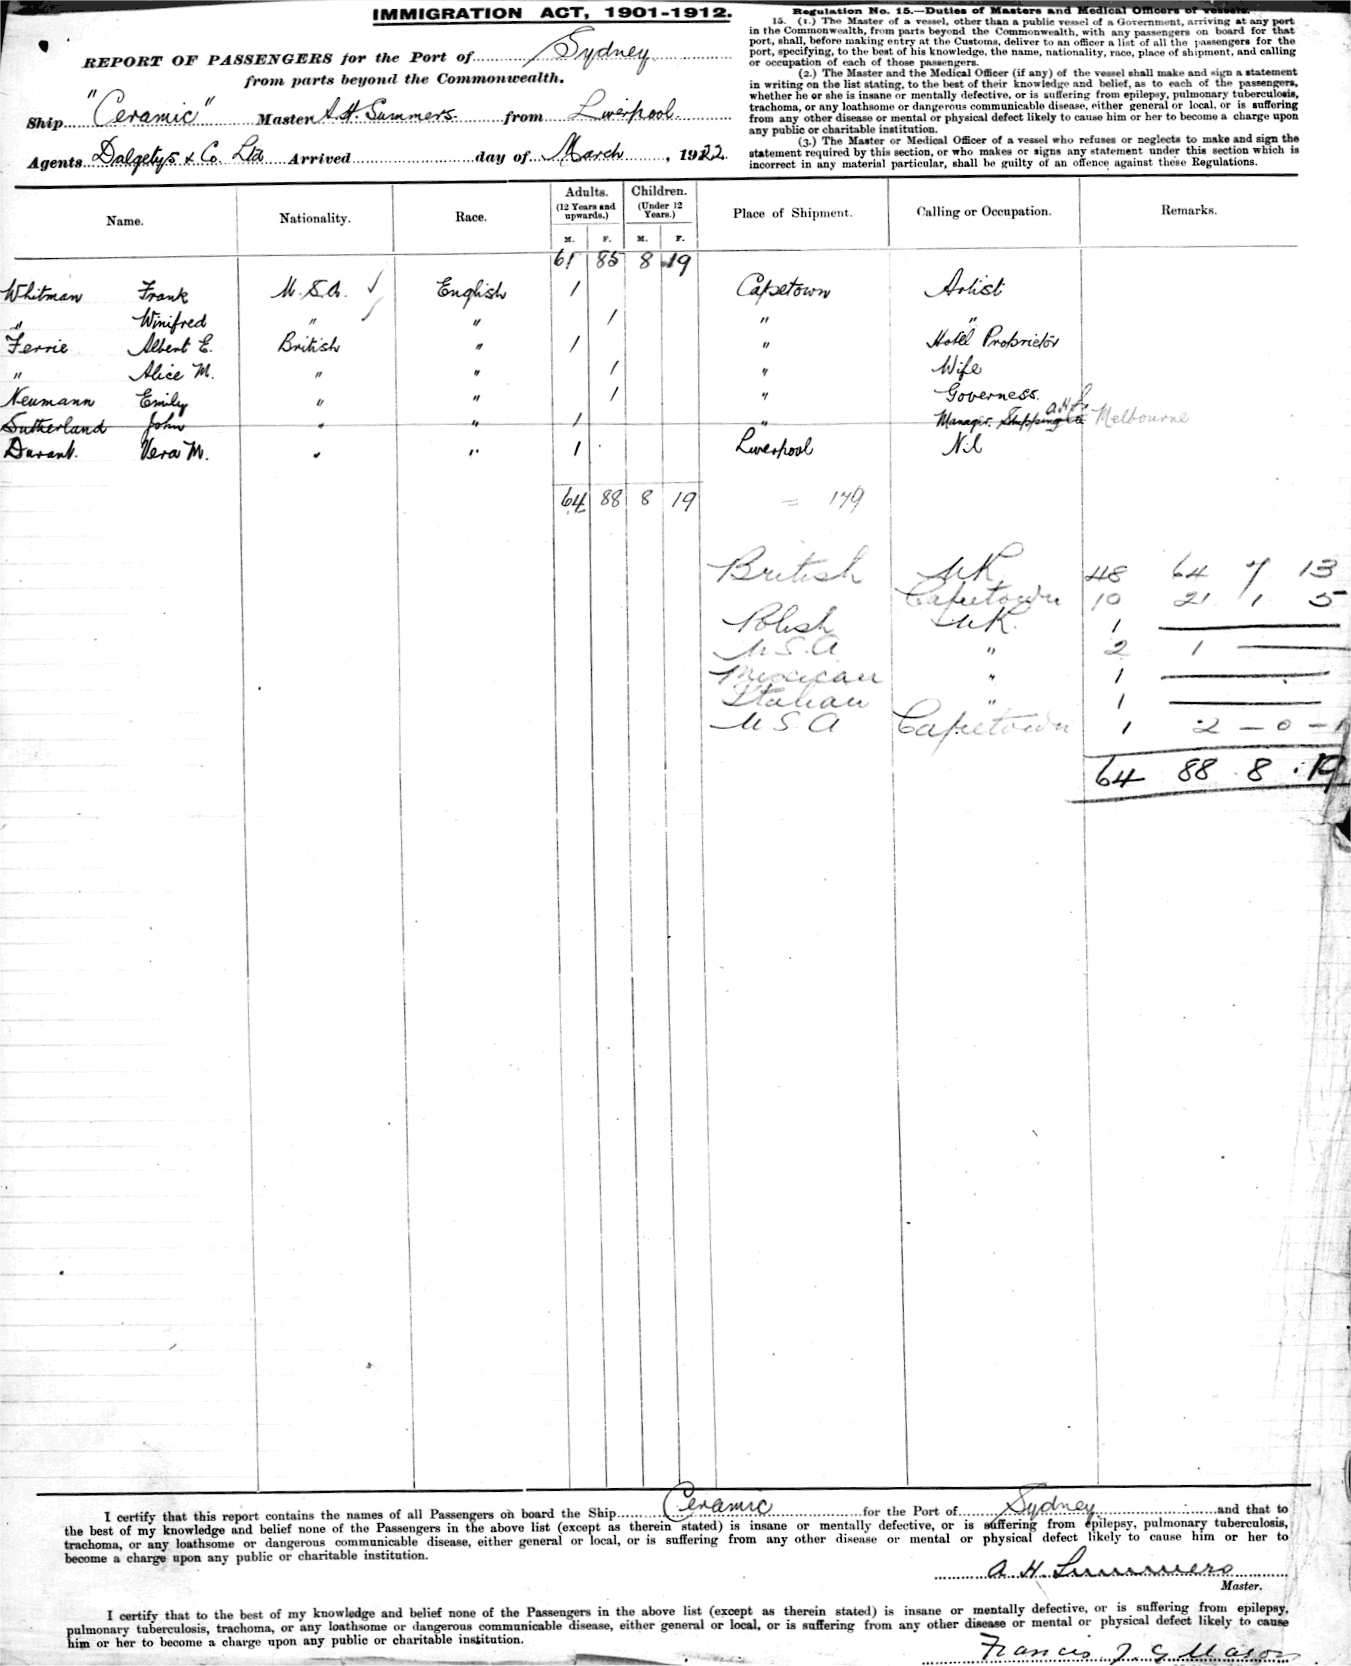 IMMIGRATION ACT, 1901-1912.
REPORT OF PASSENGERS for the Port of Sydney
from parts beyond the Commonwealth.
Ship "Ceramic" Master A. H. Summers from Liverpool.
Agents Dalgetys & Co. Ltd Arrived day of March, 1922.
Regulation No. 15.—Duties of Masters and Medical Officers of vessels.
15. (1.) The Master of a vessel, other than a public vessel of a Government, arriving at any port
in the Commonwealth, from parts beyond the Commonwealth, with any passengers on board for that
port, shall, before making entry at the Customs, deliver to an officer a list of all the passengers for the
port, specifying, to the best of his knowledge, the name, nationality, race, place of shipment, and calling
or occupation of each of those passengers.
(2.) The Master and the Medical Officer (if any) of the vessel shall make and sign a statement
in writing on the list stating, to the best of their knowledge and belief, as to each of the passengers,
whether he or she is insane or mentally defective, or is suffering from epilepsy, pulmonary tuberculosis,
trachoma, or any loathsome or dangerous communicable disease, either general or local, or is suffering
from any other disease or mental or physical defect likely to cause him or her to become a charge upon
any public or charitable institution.
(3.) The Master or Medical Officer of a vessel who refuses or neglects to make and sign the
statement required by this section, or who makes or signs any statement under this section which is
incorrect in any material particular, shall be guilty of an offence against these Regulations.
Name. Nationality. Race. Adults. (12 Years and upwards.) Children. (Under 12 Years.) Place of Shipment. Calling or Occupation. Remarks.
M. F. M. F.
61 85 8 19
Whitman Frank U.S.A. ✓ English 1 Capetown Artist
" Winifred " " 1 " "
Ferrie Albert E. British " 1 " Hotel Proprietor
" Alice M. " " 1 " Wife
Neumann Emily " " 1 " Governess.
Sutherland John " " 1 " Manager Shipping Co A.H.S. Melbourne
Durant. Vera M. " " 1 Liverpool Nil
64 88 8 19 = 179
British UK 48 64 7 13
Capetown 10 21 1 5
Polish UK. 1
U.S.A " 2 1
Mexican " 1
Italian " 1
U S A Capetown 1 2 - 0 - 1
64 88 8 19
I certify that this report contains the names of all Passengers on board the Ship Ceramic for the Port of Sydney and that to
the best of my knowledge and belief none of the Passengers in the above list (except as therein stated) is insane or mentally defective, or is suffering from epilepsy, pulmonary tuberculosis,
trachoma, or any loathsome or dangerous communicable disease, either general or local, or is suffering from any other disease or mental or physical defect likely to cause him or her to
become a charge upon any public or charitable institution.
A H Summers
Master.
I certify that to the best of my knowledge and belief none of the Passengers in the above list (except as therein stated) is insane or mentally defective, or is suffering from epilepsy,
pulmonary tuberculosis, trachoma, or any loathsome or dangerous communicable disease, either general or local, or is suffering from any other disease or mental or physical defect likely to cause
him or her to become a charge upon any public or charitable institution.
Francis J. G Mason